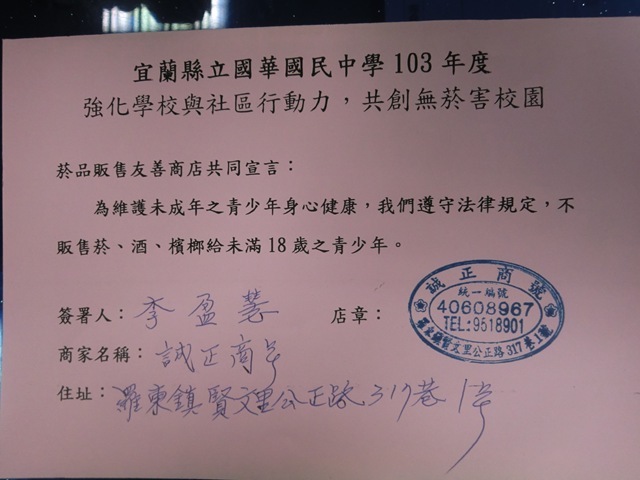 宜蘭縣立國華國民中學 103 年度
強化學校與社區行動力，共創無菸害校園
菸品販售友善商店共同宣言：
為維護未成年之青少年身心健康，我們遵守法律規定，不
販售菸、酒、檳榔給未滿 18 歲之青少年。
簽署人：李盈慧
店章：
誠正商號
統一編號
40608967
TEL:9518901
羅東鎮賢文里公正路317巷1號
商家名稱：誠正商号
住址：羅東鎮賢文里公正路317巷1号